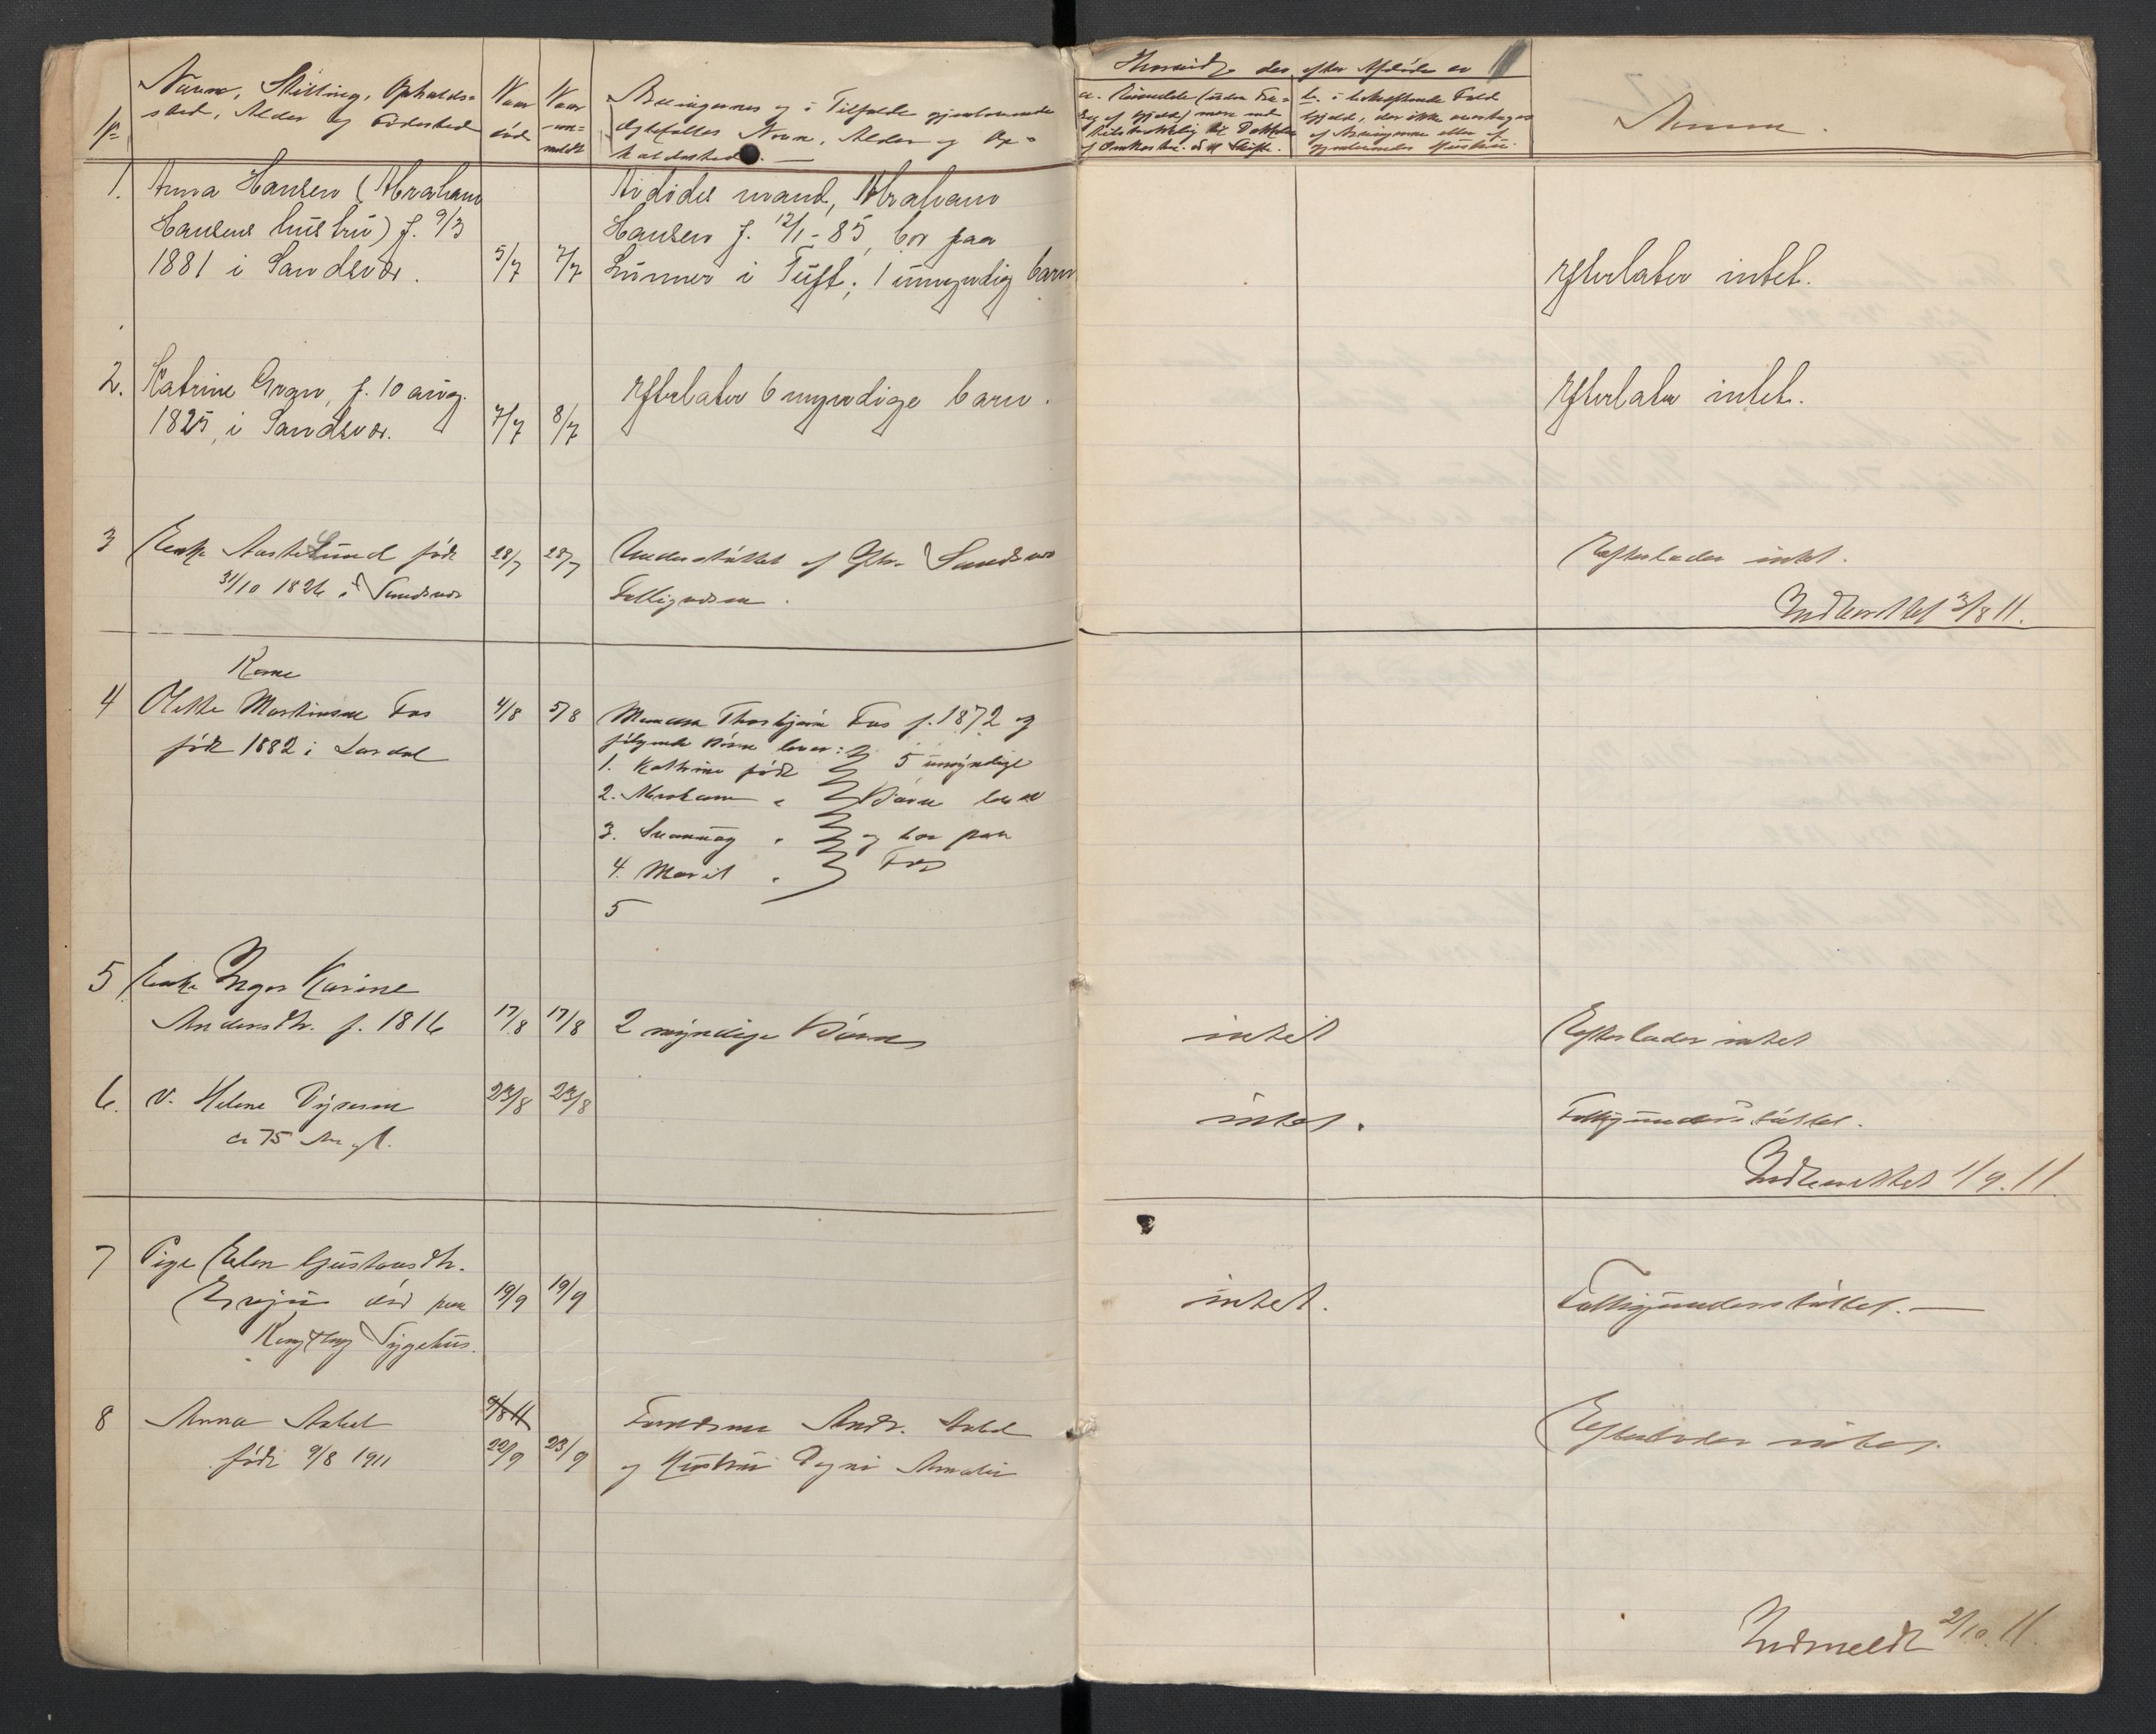 No
Navn, Stilling, Opholds-
sted, Alder og Fødested
Naar
død
Naar
an-
meldt
Arvingernes og i Tilfælde gjenlevende
Ægtefælles Navn, Alder og Op-
holdssted.
Hvorvidt der efter Afdøde er
b. i bekræftende Fald
Gjæld, der ikke overtages
af Arvingerne eller af
gjenlevende
Anm.
1.
Anna Hansen (Abraham
Hansens hustru) f. 9/3
1881 i Sandsvær.
5/7
7/7
Avdødes mand, Abraham
Hansen f. 12/1-85, bor paa
Lunner i Tuft; 1 umyndig barn
Efterlater intet.
2.
Katrine Gran, f. 10 aug.
1825, i Sandsvær.
7/7
8/7
Efterlater 6 myndige barn.
Efterlater intet.
3
Enke Aaste Lund født
31/10 1826 i Sandsvær
28/7
28/7
Understøttet af Sandsvær
Fattigvæsen.
Efterlader intet.
Indberettet 3/8 11.
4
Kone
Olette Martinsen Fos
født 1882 i Lardal
4/8
5/8
Manden Thorbjørn Fos f. 1872 og
følgende Børn lever:
1. Kathrine født
2. Abraham "
3. "
4. Marit "
5
5 umyndige
Børn lever
og bor paa
Fos
5
Enke Inger Karine
Andersdtr. f. 1816
17/8
17/8
2 myndige Børn
intet
Efterlader intet
6.
v. Helene
ca 75 Aar gl.
23/8
23/8
intet.
Fattigunderstøttet.
Indberettet 1/9. 11.
7
Pige Elen Gustavsdtr.
død paa
Kongsberg Sygehus.
19/9
19/9
intet.
Fattigunderstøttet. —
8
Anna Aabel
født 9/8 1911
9/8 11
22/9
23/9
Forældrene Andr. Aabel
og Hustru Dagni Amalie
Efterlader intet.
Indmeldt 2/10. 11.